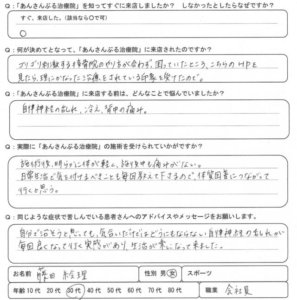 Q:「あんさんぶる治療院」を知ってすぐに来店しましたか? しなかったとしたらなぜですか?
すぐ、来店した。(該当なら○で可)
○
Q:何が決めてとなって、「あんさんぶる治療院」に来店されたのですか?
ゴリゴリ刺激する接骨院のやり方が合わず、困っていたところ、こちらのHPを
見たら、理にかなった治療をされている印象を受けたので。
Q:「あんさんぶる治療院」に来店する前は、どんなことで悩んでいましたか?
自律神経の乱れ、冷え、背中の痛み。
Q:実際に「あんさんぶる治療院」の施術を受けられていかがですか?
施術後、明らかに体が軽く、施術中も痛みがない。
日常生活で気を付けるべきことも毎回教えて下さるので、体質改善につながって
行くと思う。
Q:同じような症状で苦しんでいる患者さんへのアドバイスやメッセージをお願いします。
自分で治そうと思っても、気合いだけではどうにもならない自律神経の乱れが
毎回良くなって行く実感があり、生活が楽になって来ました。
お名前 藤田 絵理 性別 男・女 スポーツ
年齢 10代 20代 30代 40代 50代 60代 70代 80代 職業 会社員